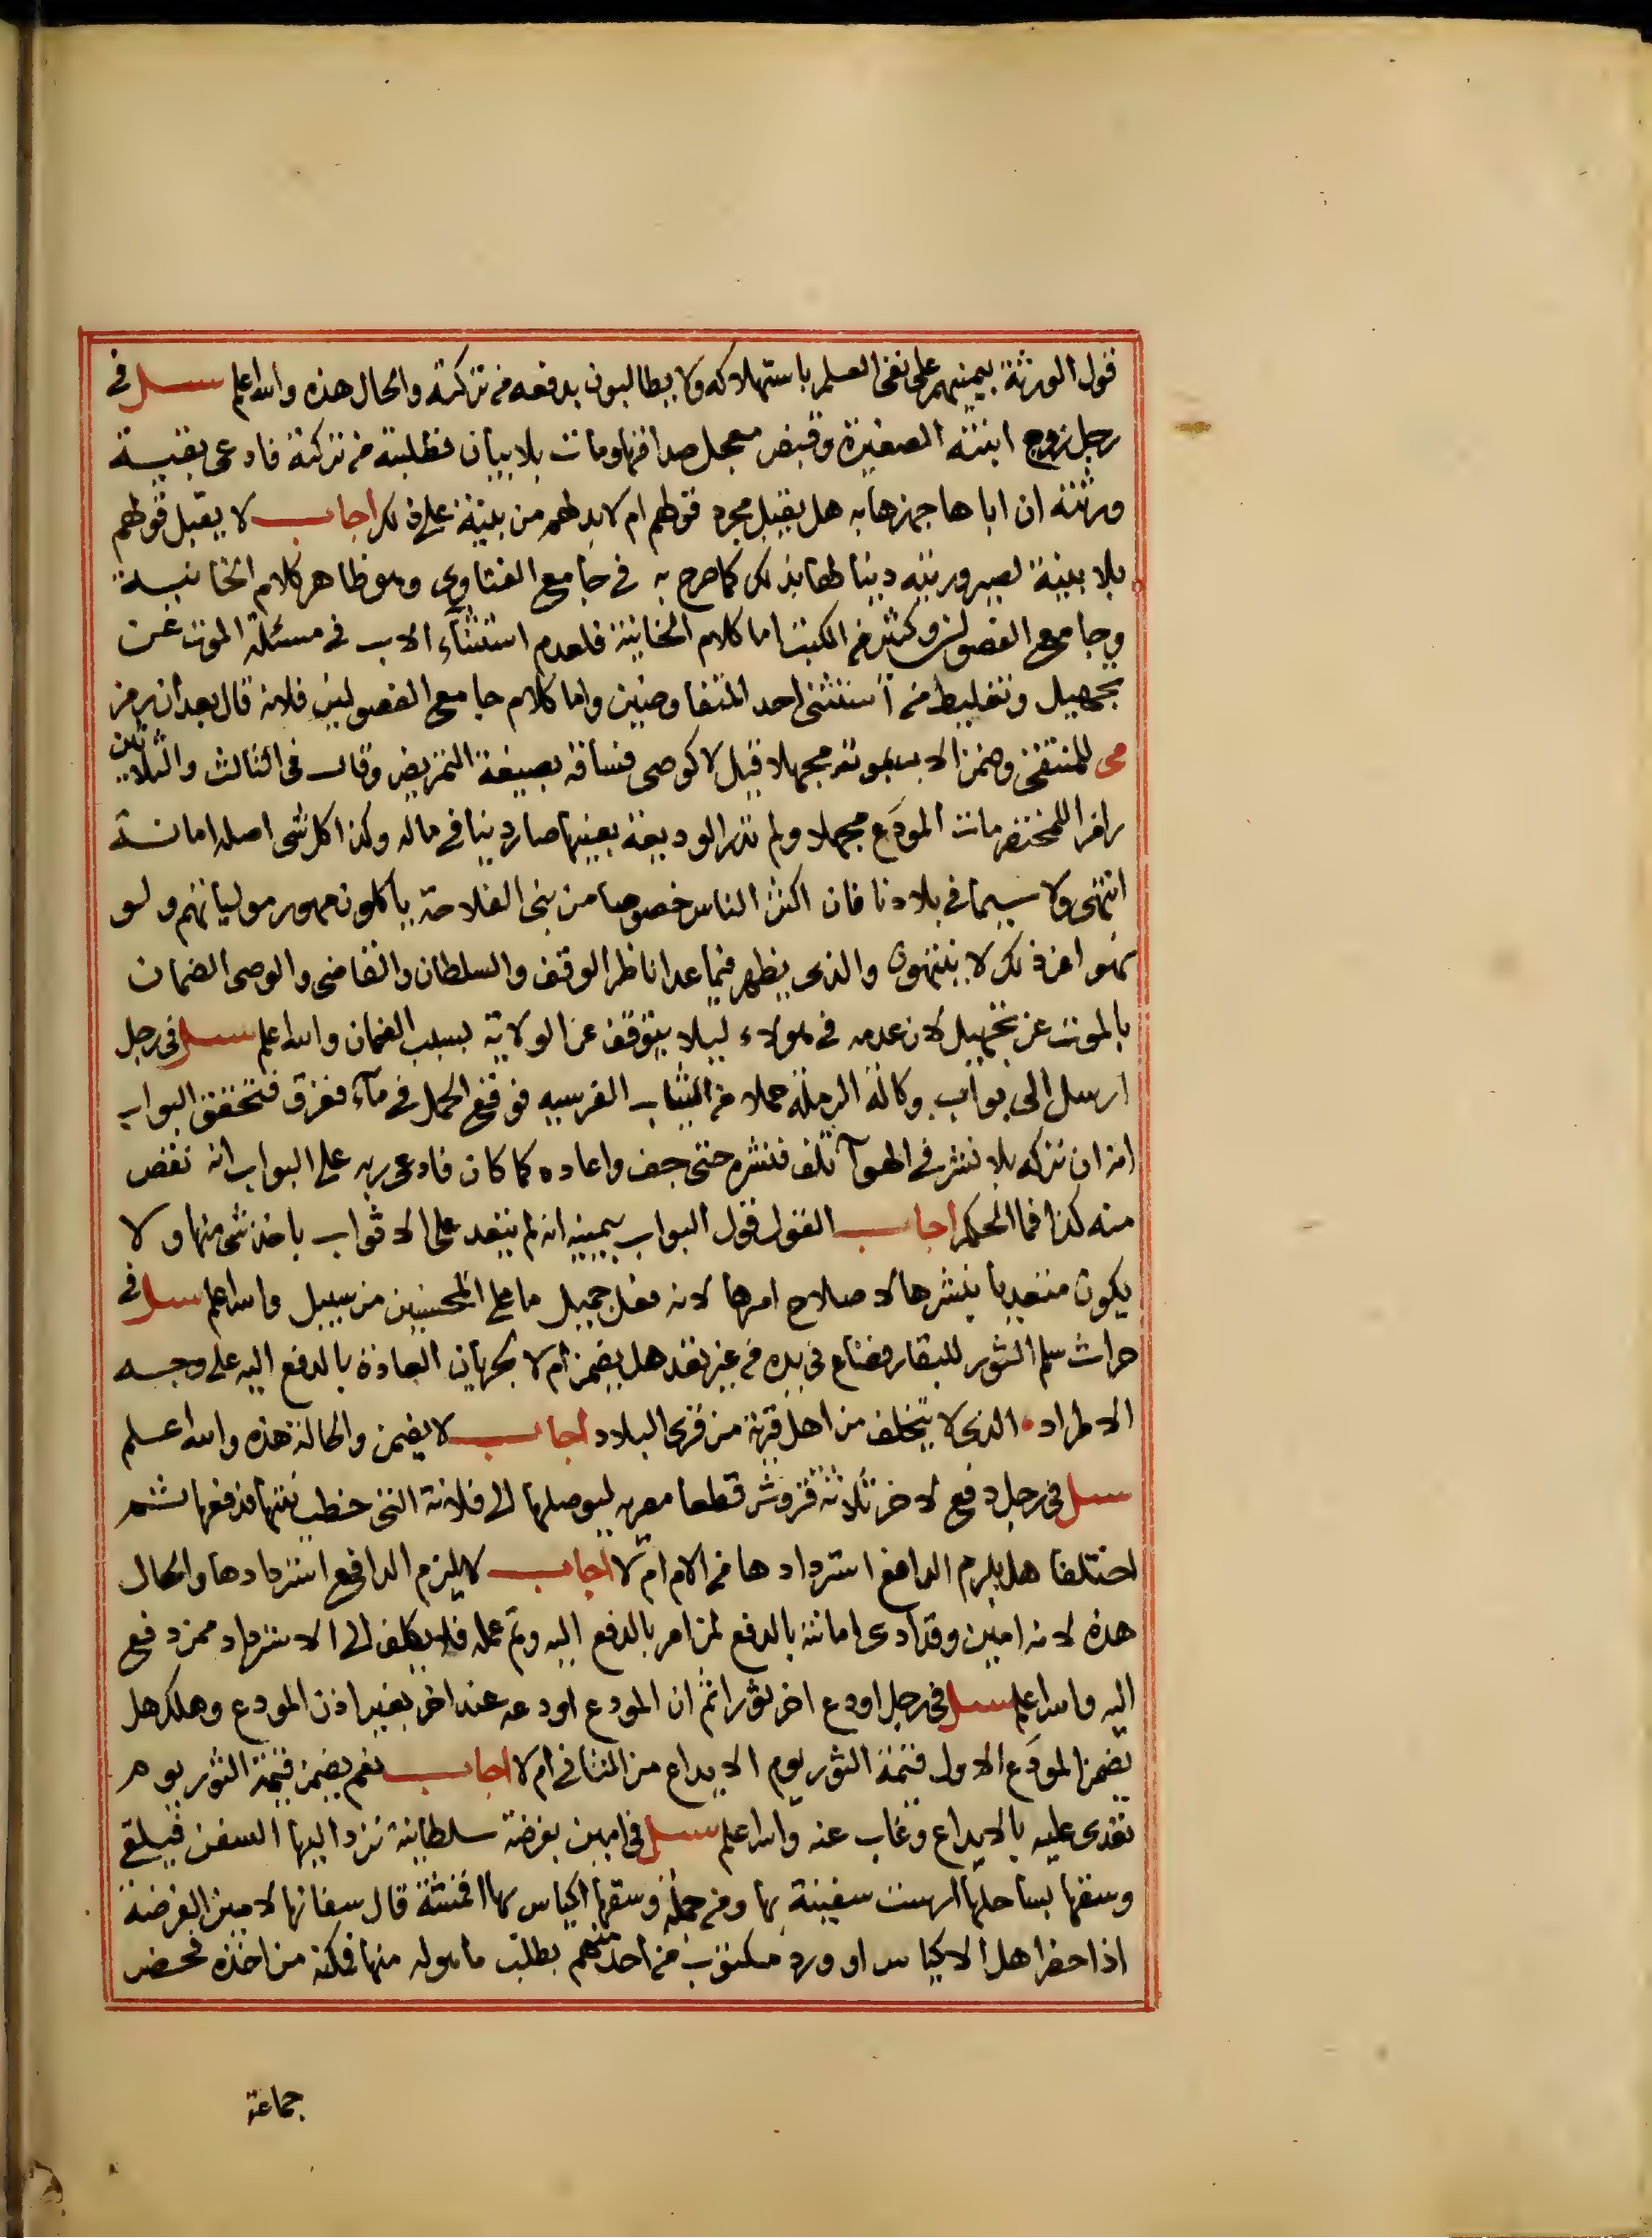 قول الورثة بيمينهم على نفى العلم باستهلاكه ولا يطالبون بدفعه من تركته والحال هذه والله اعلم سئل فى
رجل زوج ابنته الصغيرة وقبض معجل صداقها ومات بلا بيان فطلبته من تركته فادعى بقية
ورثته ان اباها جهزها به هل يقبل مجرد قولهم ام لابد لهم من بينة على ذلك اجاب لا يقبل قولهم
بلا بينة لصيرورته دينا لها بذلك كما صرح به فى جامع الفتاوى وهو ظاهر كلام الخانية
وجامع الفصولين وكثير من الكتب اما كلام الخانية فلعدم استثناء الاب فى مسئلة الموت عن
تجهيل وتغليط من استثنى احد المتفاوضين واما كلام جامع الفصولين فلانه قال بعد ان رمز
مى للمنتقى وضمن الاب بموته مجهلا قيل لا كوصى فساقه بصيغة التمريض وقال فى الثالث والثلاثين
رامزا للمختصر مات المودَع مجهلا ولم تدر الوديعة بعينها صار دينا فى ماله وكذا كل شى اصله امانة
انتهى ولا سيما فى بلادنا فان اكثر الناس خصوصا من بنى الفلاحة ياكلون مهور مولياتهم ولو
نهوا عن ذلك لا ينتهون والذى يظهر فيما عدا ناظر الوقف والسلطان والقاضى والوصى الضمان
بالموت عن تجهيل لان عدمه فى هولاء ليلا يتوقف عن الولاية بسبب الضمان والله اعلم سئل فى رجل
ارسل الى بواب وكالة الرملة حملا من الثياب الفرسيه فوقع الحمل فى مآء فغرق فتحقق البواب
انه ان تركه بلا نشر فى الهوآ تلف فنشره حتى جف واعاده كما كان فادعى ربه على البواب انه نقص
منه كذا فما الحكم اجاب القول قول البواب بيمينه انه لم يتعد على الاثواب باخذ شى منها ولا
يكون متعديا بنشرها لاصلاح امرها لانه فعل جميل ما على المحسنين من سبيل والله اعلم سئل فى
حراث سلم الثور للبقار فضاع فى يده من غير تعد هل يضمن ام لا بجريان العادة بالدفع اليه على وجه
الاطراد الذى لا يتخلف من اهل قرية من قرى البلاد اجاب لا يضمن والحالة هذه والله اعلم
سئل فى رجل دفع لاخر ثلاثة قروش قطعا مصريه ليوصلها الى فلانة التى خطب بنتها فدفعها ثم
اختلفا هل يلزم الدافع استردادها من الام ام لا اجاب لا يلزم الدافع استردادها والحال
هذه لانه امين وقد ادى امانته بالدفع لمن امر بالدفع اليه وتم عمله فلا يكلف الى الاسترداد ممن دفع
اليه والله اعلم سئل فى رجل اودع اخر ثورا ثم ان المودع اودعه عند اخر بغير اذن المودع وهلك هل
يضمن المودَع الاول قيمة الثور يوم الايداع من الثانى ام لا اجاب نعم يضمن قيمة الثور يوم
تعدى عليه بالايداع وغاب عنه والله اعلم سئل فى امين بفرضة سلطانية ترد اليها السفن فيلقى
وسقها بساحلها ارست سفينة بها ومن جملة وسقها اكياس بها اقمشة قال سفانها لامين الفرضة
اذا حضر اهل الاكياس او ورد مكتوب من احد منهم بطلب ماهوله منها فمكنه من اخذه فحضر
جماعة